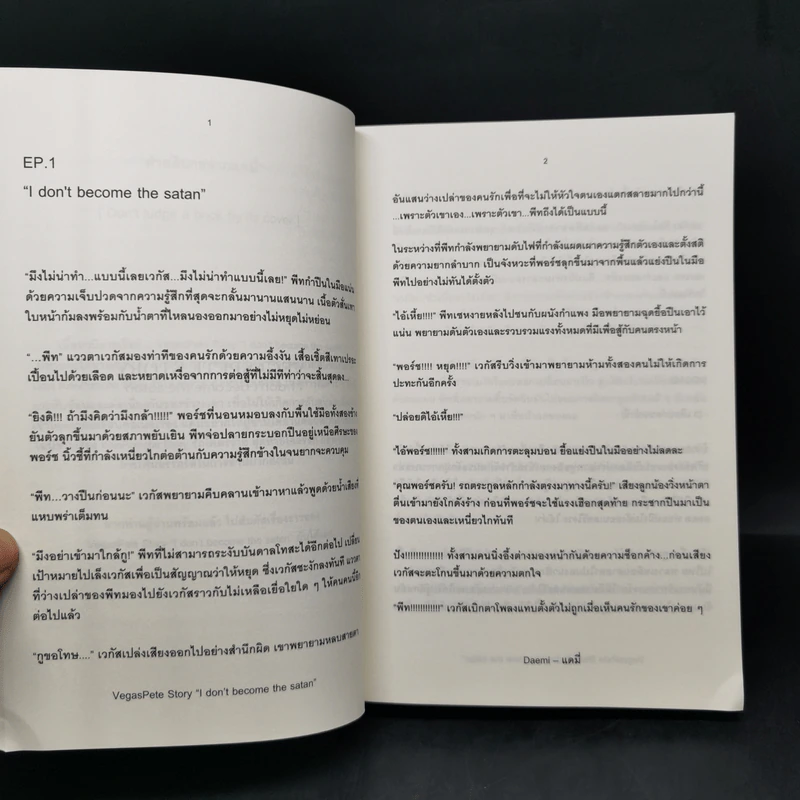 1
EP.1
“I don't become the satan”
“มึงไม่น่าทำ...แบบนี้เลยเวกัส...มึงไม่น่าทำแบบนี้เลย!” พีทกำปืนในมือแน่น
ด้วยความเจ็บปวดจากความรู้สึกที่สุดจะกลั้นมานานแสนนาน เนื้อตัวสั่นเทา
ใบหน้าก้มลงพร้อมกับน้ำตาที่ไหลนองออกมาอย่างไม่หยุดไม่หย่อน
“...พีท” แววตาเวกัสมองท่าทีของคนรักด้วยความอึ้งงัน เสื้อเชิ้ตสีเทาเปรอะ
เปื้อนไปด้วยเลือด และหยาดเหงื่อจากการต่อสู้ที่ไม่มีทีท่าว่าจะสิ้นสุดลง...
“ยิงดิ!!! ถ้ามึงคิดว่ามึงกล้า!!!!!” พอร์ชที่นอนหมอบลงกับพื้นใช้มือทั้งสองข้าง
ยันตัวลุกขึ้นมาด้วยสภาพยับเยิน พีทจ่อปลายกระบอกปืนอยู่เหนือศีรษะของ
พอร์ช นิ้วชี้ที่กำลังเหนี่ยวไกต่อต้านกับความรู้สึกข้างในจนยากจะควบคุม
“พีท...วางปืนก่อนนะ” เวกัสพยายามคืบคลานเข้ามาหาแล้วพูดด้วยน้ำเสียงที่
แหบพร่าเต็มทน
“มึงอย่าเข้ามาใกล้กู!” พีทที่ไม่สามารถระงับบันดาลโทสะได้อีกต่อไป เปลี่ยน
เป้าหมายไปเล็งเวกัสเพื่อเป็นสัญญาณว่าให้หยุด ซึ่งเวกัสชะงักลงทันที แววตา
ที่ว่างเปล่าของพีทมองไปยังเวกัสราวกับไม่เหลือเยื่อใยใด ๆ ให้คนคนนี้อีก
ต่อไปแล้ว
“กูขอโทษ....” เวกัสเปล่งเสียงออกไปอย่างสำนึกผิด เขาพยายามหลบสายตา
VegasPete Story “I don't become the satan”
2
อันแสนว่างเปล่าของคนรักเพื่อที่จะไม่ให้หัวใจตนเองแตกสลายมากไปกว่านี้
...เพราะตัวเขาเอง...เพราะตัวเขา...พีทถึงได้เป็นแบบนี้
ในระหว่างที่พีทกำลังพยายามดับไฟที่กำลังแผดเผาความรู้สึกตัวเองและตั้งสติ
ด้วยความยากลำบาก เป็นจังหวะที่พอร์ชลุกขึ้นมาจากพื้นแล้วแย่งปืนในมือ
พีทไปอย่างไม่ทันได้ตั้งตัว
“ไอ้เหี้ย!!!!” พีทเซหงายหลังไปชนกับผนังกำแพง มือพยายามฉุดยื้อปืนเอาไว้
แน่น พยายามดันตัวเองและรวบรวมแรงทั้งหมดที่มีเพื่อสู้กับคนตรงหน้า
“พอร์ช!!!! หยุด!!!!” เวกัสรีบวิ่งเข้ามาพยายามห้ามทั้งสองคนไม่ให้เกิดการ
ปะทะกันอีกครั้ง
“ปล่อยดิไอ้เหี้ย!!!”
“ไอ้พอร์ช!!!!!!” ทั้งสามเกิดการตะลุมบอน ยื้อแย่งปืนในมืออย่างไม่ลดละ
“คุณพอร์ชครับ! รถตระกูลหลักกำลังตรงมาทางนี้ครับ!” เสียงลูกน้องวิ่งหน้าตา
ตื่นเข้ามายังโกดังร้าง ก่อนที่พอร์ชจะใช้แรงเฮือกสุดท้าย กระชากปืนมาเป็น
ของตนเองและเหนี่ยวไกทันที
ปัง!!!!!!!!!!!!! ทั้งสามคนนิ่งอึ้งต่างมองหน้ากันด้วยความช็อกค้าง...ก่อนเสียง
เวกัสจะตะโกนขึ้นมาด้วยความตกใจ
“พีท!!!!!!!!!!!!” เวกัสเบิกตาโพลงแทบตั้งตัวไม่ถูกเมื่อเห็นคนรักของเขาค่อย ๆ
Daemi – แดมี่